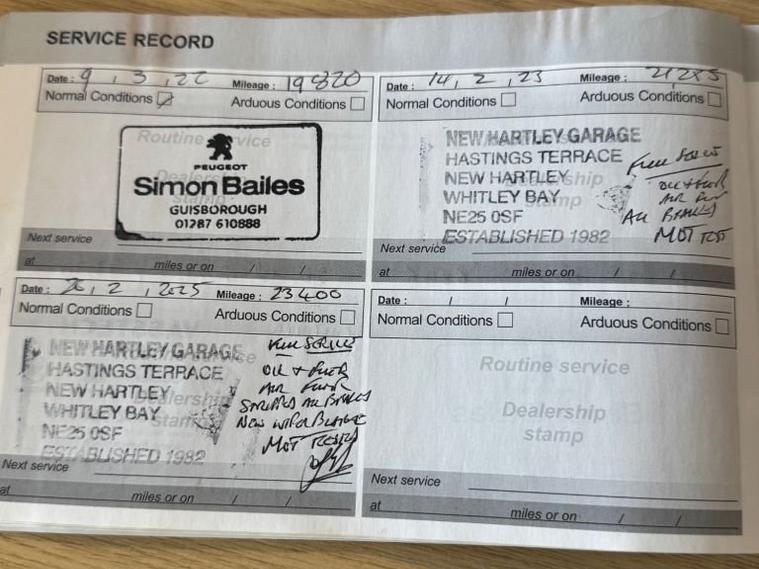 SERVICE RECORD
Date : 9 , 3 , 22 Mileage : 19820
Normal Conditions Arduous Conditions
Routine service
Dealership
stamp
PEUGEOT
Simon Bailes
GUISBOROUGH
01287 610888
Next service
at miles or on / /
Date : 14 , 2 , 23 Mileage : 21285
Normal Conditions Arduous Conditions
NEW HARTLEY GARAGE
HASTINGS TERRACE
NEW HARTLEY
WHITLEY BAY
NE25 0SF
ESTABLISHED 1982
Full Service
OIL + FILTER
AIR
ALL BRAKES
MOT TEST
Next service
at miles or on / /
Date : 26 , 2 , 2025 Mileage : 23400
Normal Conditions Arduous Conditions
NEW HARTLEY GARAGE
HASTINGS TERRACE
NEW HARTLEY
WHITLEY BAY
NE25 0SF
ESTABLISHED 1982
FULL SERVICE
OIL + FILTER
AIR FILTER
STRIPPED ALL BRAKES
NEW WIPER BLADES
MOT TESTED
Next service
at miles or on / /
Date : / / Mileage :
Normal Conditions Arduous Conditions
Routine service
Dealership
stamp
Next service
at miles or on / /